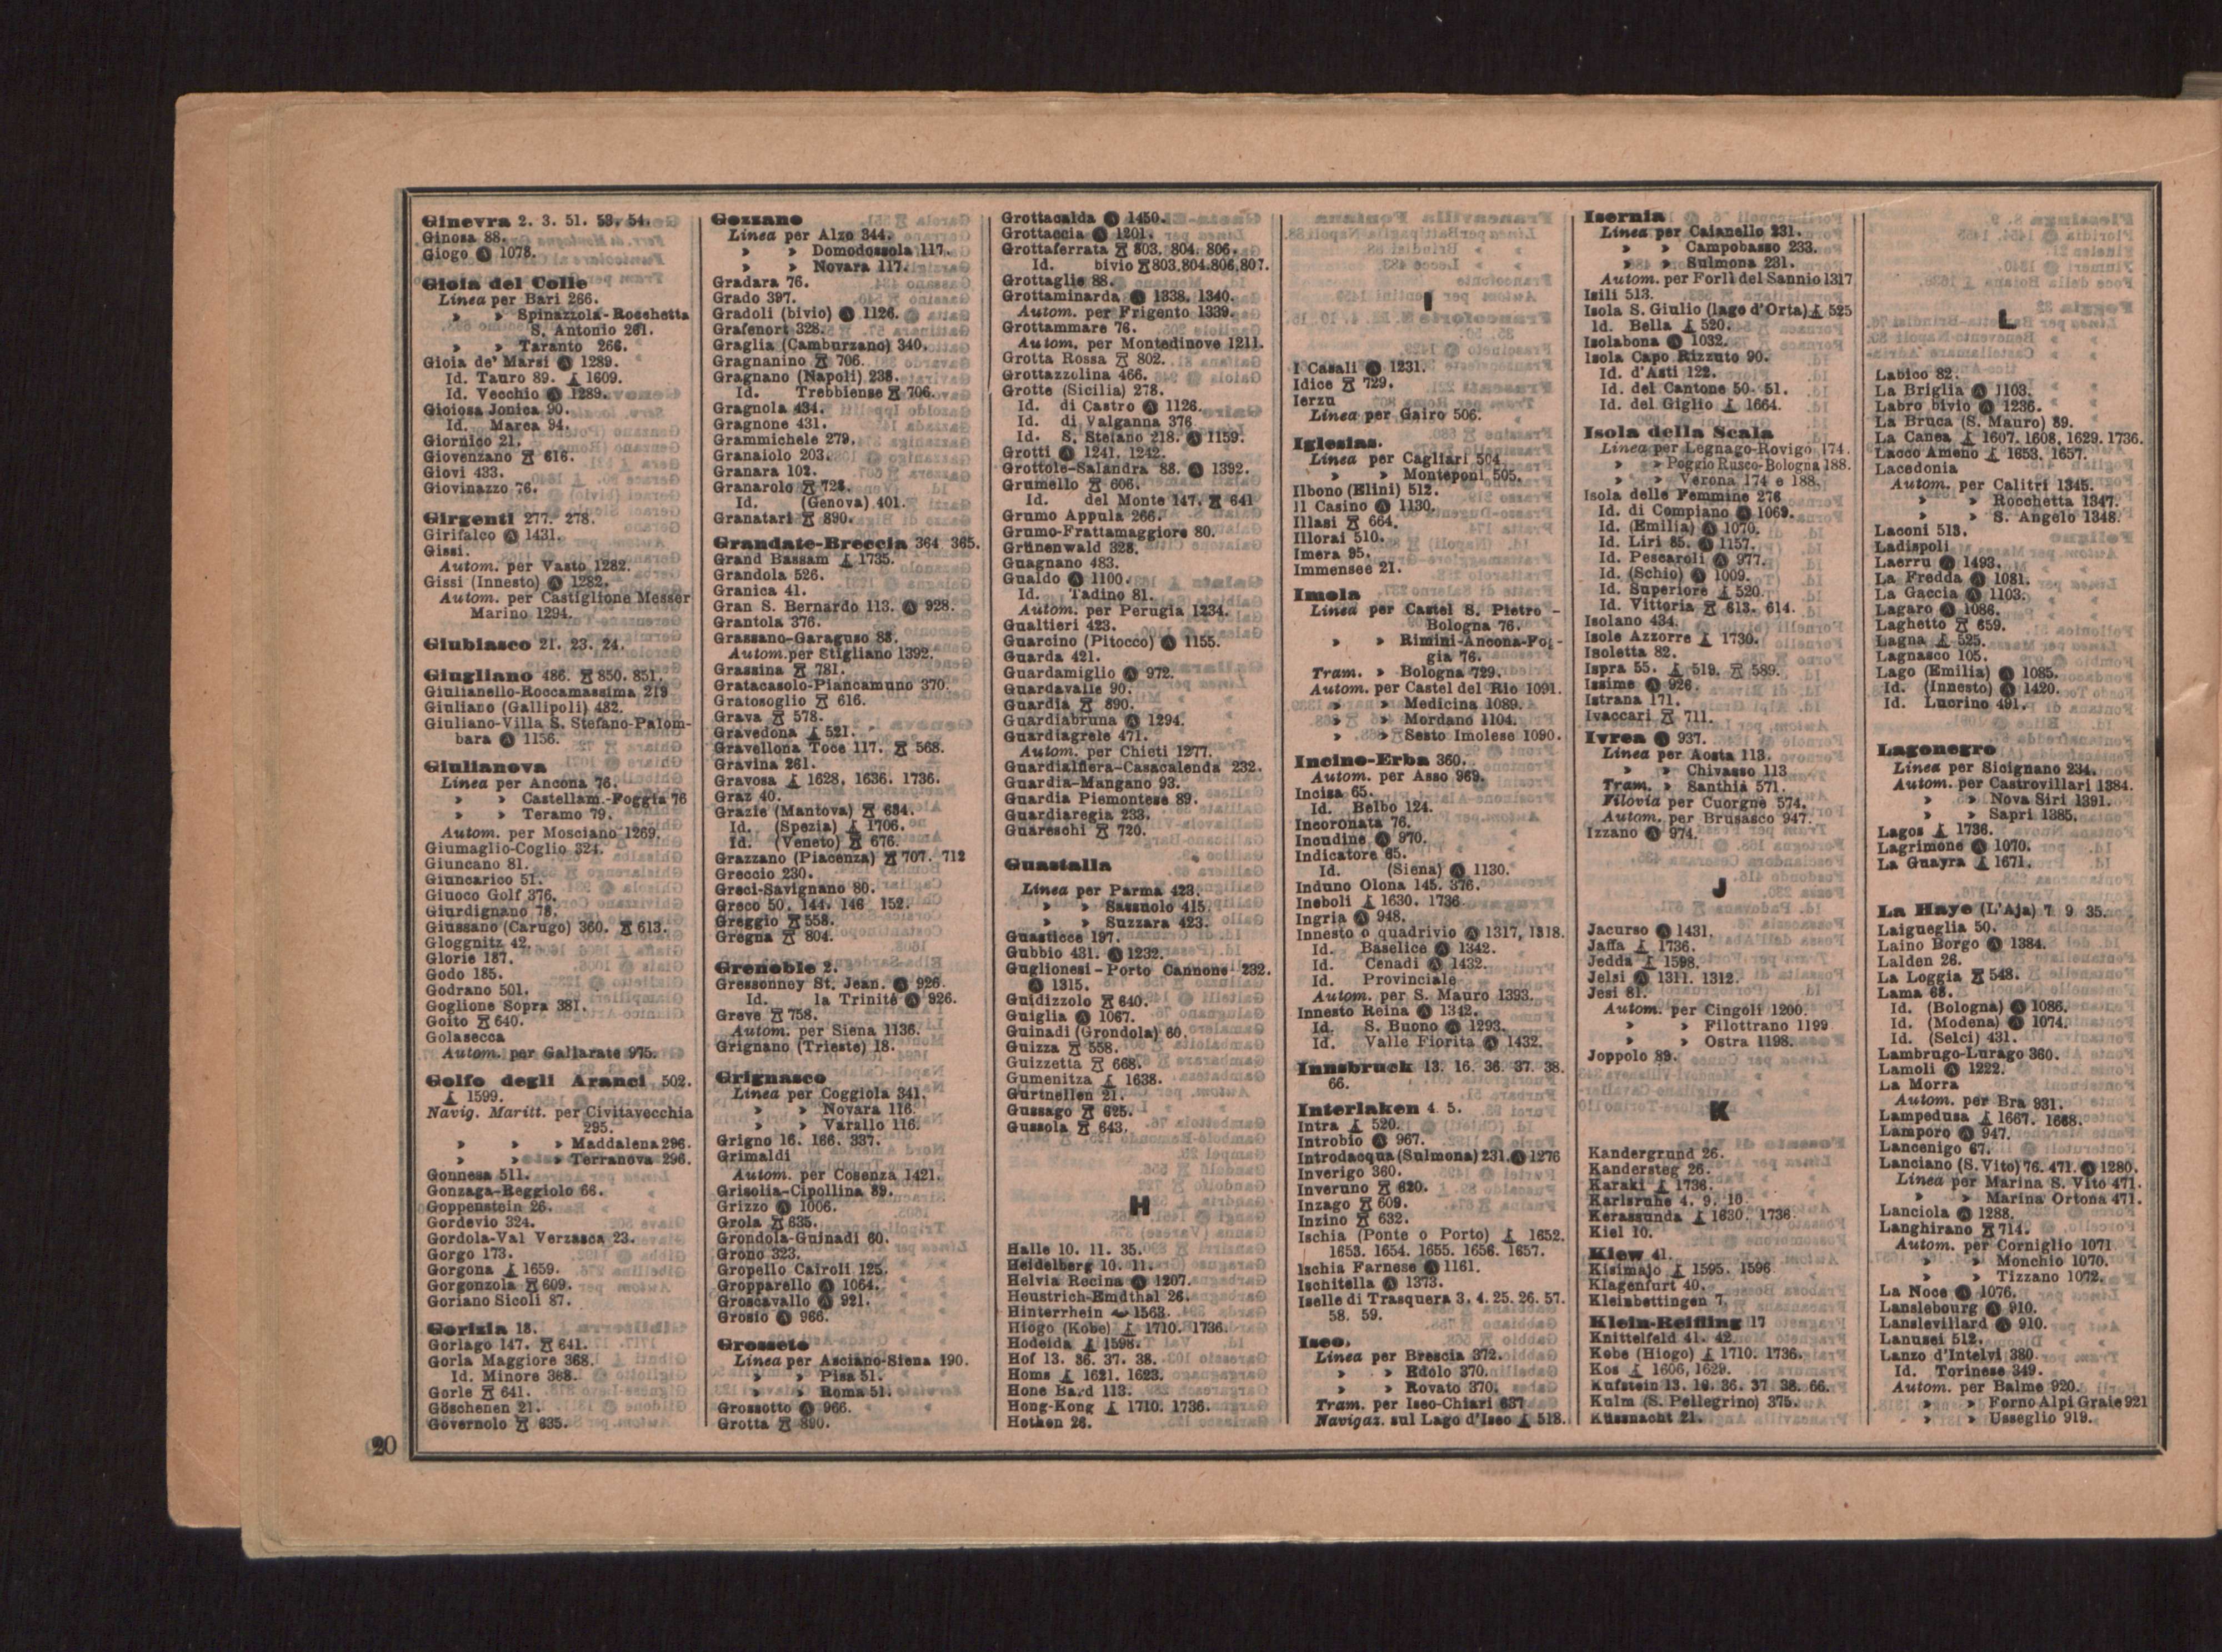 Ginevra 2. 3. 51. 53. 54.
Ginosa 88.
Giogo Ⓐ 1078.
Gioia del Colle
Linea per Bari 266.
» » Spinazzola-Rocchetta
S. Antonio 261.
» » Taranto 266.
Gioia de' Marsi Ⓐ 1289.
Id. Tauro 89. 1609.
Id. Vecchio Ⓐ 1289.
Gioiosa Jonica 90.
Id. Marea 94.
Giornico 21.
Giovenzano 616.
Giovi 433.
Giovinazzo 76.
Girgenti 277. 278.
Girifalco Ⓐ 1431.
Gissi.
Autom. per Vasto 1282.
Gissi (Innesto) Ⓐ 1282.
Autom. per Castiglione Messer
Marino 1294.
Giubiasco 21. 23. 24.
Giugliano 486. 850. 851.
Giulianello-Roccamassima 219
Giuliano (Gallipoli) 482.
Giuliano-Villa S. Stefano-Palom-
bara Ⓐ 1156.
Giulianova
Linea per Ancona 76.
» » Castellam.-Foggia 76
» » Teramo 79.
Autom. per Mosciano 1269.
Giumaglio-Coglio 324.
Giuncano 81.
Giuncarico 51.
Giuoco Golf 376.
Giurdignano 78.
Giussano (Carugo) 360. 613.
Gloggnitz 42.
Glorie 187.
Godo 185.
Godrano 501.
Goglione Sopra 381.
Goito 640.
Golasecca
Autom. per Gallarate 975.
Golfo degli Aranci 502.
1599.
Navig. Maritt. per Civitavecchia
295.
» » » Maddalena 296.
» » » Terranova 296.
Gonnesa 511.
Gonzaga-Reggiolo 66.
Goppenstein 26.
Gordevio 324.
Gordola-Val Verzasca 23.
Gorgo 173.
Gorgona 1659.
Gorgonzola 609.
Goriano Sicoli 87.
Gorizia 18.
Gorlago 147. 641.
Gorla Maggiore 368.
Id. Minore 368.
Gorle 641.
Göschenen 21.
Governolo 635.
Gozzano
Linea per Alzo 344.
» » Domodossola 117.
» » Novara 117.
Gradara 76.
Grado 397.
Gradoli (bivio) Ⓐ 1126.
Grafenort 328.
Graglia (Camburzano) 340.
Gragnanino 706.
Gragnano (Napoli) 238.
Id. Trebbiense 706.
Gragnola 434.
Gragnone 431.
Grammichele 279.
Granaiolo 203.
Granara 102.
Granarolo 728.
Id. (Genova) 401.
Granatari 890.
Grandate-Breccia 364 365.
Grand Bassam 1735.
Grandola 526.
Granica 41.
Gran S. Bernardo 113. Ⓐ 928.
Grantola 376.
Grassano-Garaguso 88.
Autom. per Stigliano 1392.
Grassina 781.
Gratacasolo-Piancamuno 370.
Gratosoglio 616.
Grava 578.
Gravedona 521.
Gravellona Toce 117. 568.
Gravina 261.
Gravosa 1628. 1636. 1736.
Graz 40.
Grazie (Mantova) 634.
Id. (Spezia) 1706.
Id. (Veneto) 676.
Grazzano (Piacenza) 707. 712
Greccio 230.
Greci-Savignano 80.
Greco 50. 144. 146 152.
Greggio 558.
Gregna 804.
Grenoble 2.
Gressonney St. Jean. Ⓐ 926.
Id. la Trinité Ⓐ 926.
Greve 758.
Autom. per Siena 1136.
Grignano (Trieste) 18.
Grignasco
Linea per Coggiola 341.
» » Novara 116.
» » Varallo 116.
Grigno 16. 166. 337.
Grimaldi
Autom. per Cosenza 1421.
Grisolia-Cipollina 89.
Grizzo Ⓐ 1006.
Grola 635.
Grondola-Guinadi 60.
Grono 323.
Gropello Cairoli 125.
Gropparello Ⓐ 1064.
Groscavallo Ⓐ 921.
Grosio Ⓐ 966.
Grosseto
Linea per Asciano-Siena 190.
» » Pisa 51.
» » Roma 51.
Grossotto Ⓐ 966.
Grotta 890.
Grottacalda Ⓐ 1450.
Grottaccia Ⓐ 1201.
Grottaferrata 803. 804. 806.
Id. bivio 803.804.806.807.
Grottaglie 88.
Grottaminarda Ⓐ 1338. 1340.
Autom. per Frigento 1339.
Grottammare 76.
Autom. per Montedinove 1211.
Grotta Rossa 802.
Grottazzolina 466.
Grotte (Sicilia) 278.
Id. di Castro Ⓐ 1126.
Id. di Valganna 376
Id. S. Stefano 218. Ⓐ 1159.
Grotti Ⓐ 1241. 1242.
Grottole-Salandra 88. Ⓐ 1392.
Grumello 606.
Id. del Monte 147. 641
Grumo Appula 266.
Grumo-Frattamaggiore 80.
Grünenwald 328.
Guagnano 483.
Gualdo Ⓐ 1100.
Id. Tadino 81.
Autom. per Perugia 1234.
Gualtieri 423.
Guarcino (Pitocco) Ⓐ 1155.
Guarda 421.
Guardamiglio Ⓐ 972.
Guardavalle 90.
Guardia 890.
Guardiabruna Ⓐ 1294.
Guardiagrele 471.
Autom. per Chieti 1277.
Guardialfiera-Casacalenda 232.
Guardia-Mangano 93.
Guardia Piemontese 89.
Guardiaregia 233.
Guareschi 720.
Guastalla
Linea per Parma 423.
» » Sassuolo 415.
» » Suzzara 423.
Guasticce 197.
Gubbio 431. Ⓐ 1232.
Guglionesi-Porto Cannone 232.
Ⓐ 1315.
Guidizzolo 640.
Guiglia Ⓐ 1067.
Guinadi (Grondola) 60.
Guizza 558.
Guizzetta 668.
Gumenitza 1638.
Gurtnellen 21.
Gussago 625.
Gussola 643.
H
Halle 10. 11. 35.
Heidelberg 10. 11.
Helvia Recina Ⓐ 1207.
Heustrich-Emdthal 26.
Hinterrhein 1563.
Hiogo (Kobe) 1710. 1736.
Hodeida 1598.
Hof 13. 36. 37. 38.
Homs 1621. 1623.
Hone Bard 113.
Hong-Kong 1710. 1736.
Hothen 26.
I
I Casali Ⓐ 1231.
Idice 729.
Ierzu
Linea per Gairo 506.
Iglesias.
Linea per Cagliari 504.
» » Monteponi 505.
Ilbono (Elini) 512.
Il Casino Ⓐ 1130.
Illasi 664.
Illorai 510.
Imera 95.
Immensee 21.
Imola
Linea per Castel S. Pietro-
Bologna 76.
» » Rimini-Ancona-Fog-
gia 76.
Tram. » Bologna 729.
Autom. per Castel del Rio 1091.
» » Medicina 1089.
» » Mordano 1104.
» » Sesto Imolese 1090.
Incino-Erba 360.
Autom. per Asso 969.
Incisa 65.
Id. Belbo 124.
Incoronata 76.
Incudine Ⓐ 970.
Indicatore 65.
Id. (Siena) Ⓐ 1130.
Induno Olona 145. 376.
Ineboli 1630. 1736
Ingria Ⓐ 948.
Innesto o quadrivio Ⓐ 1317, 1318.
Id. Baselice Ⓐ 1342.
Id. Cenadi Ⓐ 1432.
Id. Provinciale
Autom. per S. Mauro 1393.
Innesto Reina Ⓐ 1342.
Id. S. Buono Ⓐ 1293.
Id. Valle Fiorita Ⓐ 1432.
Innsbruck 13. 16. 36. 37. 38.
66.
Interlaken 4. 5.
Intra 520.
Introbio Ⓐ 967.
Introdacqua (Sulmona) 231. Ⓐ 1276
Inverigo 360.
Inveruno 620.
Inzago 609.
Inzino 632.
Ischia (Ponte o Porto) 1652.
1653. 1654. 1655. 1656. 1657.
Ischia Farnese Ⓐ 1161.
Ischitella Ⓐ 1373.
Iselle di Trasquera 3. 4. 25. 26. 57.
58. 59.
Iseo.
Linea per Brescia 372.
» » Edolo 370.
» » Rovato 370.
Tram. per Iseo-Chiari 637
Navigaz. sul Lago d'Iseo 518.
Isernia
Linea per Caianello 231.
» » Campobasso 233.
» » Sulmona 231.
Autom. per Forlì del Sannio 1317
Isili 513.
Isola S. Giulio (lago d'Orta) 525
Id. Bella 520.
Isolabona Ⓐ 1032.
Isola Capo Rizzuto 90.
Id. d'Asti 122.
Id. del Cantone 50. 51.
Id. del Giglio 1664.
Isola della Scala
Linea per Legnago-Rovigo 174.
» » Poggio Rusco-Bologna 188.
» » Verona 174 e 188.
Isola delle Femmine 276
Id. di Compiano Ⓐ 1069.
Id. (Emilia) Ⓐ 1070.
Id. Liri 85. Ⓐ 1157.
Id. Pescaroli Ⓐ 977.
Id. (Schio) Ⓐ 1009.
Id. Superiore 520.
Id. Vittoria 613. 614.
Isolano 434.
Isole Azzorre 1730.
Isoletta 82.
Ispra 55. 519. 589.
Issime Ⓐ 926.
Istrana 171.
Ivaccari 711.
Ivrea Ⓐ 937.
Linea per Aosta 113.
» » Chivasso 113
Tram. » Santhià 571.
Filovia per Cuorgnè 574.
Autom. per Brusasco 947.
Izzano Ⓐ 974.
J
Jacurso Ⓐ 1431.
Jaffa 1736.
Jedda 1598.
Jelsi Ⓐ 1311. 1312.
Jesi 81.
Autom. per Cingoli 1200.
» » Filottrano 1199
» » Ostra 1198.
Joppolo 89.
K
Kandergrund 26.
Kandersteg 26.
Karaki 1736.
Karlsruhe 4. 9. 10.
Kerassunda 1630. 1736.
Kiel 10.
Kiew 41.
Kisimajo 1595. 1596
Klagenfurt 40.
Kleinbettingen 7.
Klein-Reifling 17
Knittelfeld 41. 42.
Kobe (Hiogo) 1710. 1736.
Kos 1606, 1629.
Kufstein 13. 16. 36. 37 38. 66.
Kulm (S. Pellegrino) 375.
Küssnacht 21.
L
Labico 82.
La Briglia Ⓐ 1103.
Labro bivio Ⓐ 1236.
La Bruca (S. Mauro) 89.
La Canea 1607. 1608. 1629. 1736.
Lacco Ameno 1653. 1657.
Lacedonia
Autom. per Calitri 1345.
» » Rocchetta 1347.
» » S. Angelo 1348.
Laconi 513.
Ladispoli
Laerru Ⓐ 1493.
La Fredda Ⓐ 1081.
La Gaccia Ⓐ 1103.
Lagaro Ⓐ 1086.
Laghetto 659.
Lagna 525.
Lagnasco 105.
Lago (Emilia) Ⓐ 1085.
Id. (Innesto) Ⓐ 1420.
Id. Lucrino 491.
Lagonegro
Linea per Sicignano 234.
Autom. per Castrovillari 1384.
» » Nova Siri 1391.
» » Sapri 1385.
Lagos 1736.
Lagrimone Ⓐ 1070.
La Guayra 1671.
La Haye (L'Aja) 7 9 35.
Laigueglia 50.
Laino Borgo Ⓐ 1384.
Lalden 26.
La Loggia 548.
Lama 68.
Id. (Bologna) Ⓐ 1086.
Id. (Modena) Ⓐ 1074.
Id. (Selci) 431.
Lambrugo-Lurago 360.
Lamoli Ⓐ 1222.
La Morra
Autom. per Bra 931.
Lampedusa 1667. 1668.
Lamporo Ⓐ 947.
Lancenigo 67.
Lanciano (S. Vito) 76. 471. Ⓐ 1280.
Linea per Marina S. Vito 471.
» » Marina Ortona 471.
Lanciola Ⓐ 1288.
Langhirano 714.
Autom. per Corniglio 1071
» » Monchio 1070.
» » Tizzano 1072.
La Noce Ⓐ 1076.
Lanslebourg Ⓐ 910.
Lanslevillard Ⓐ 910.
Lanusei 512.
Lanzo d'Intelvi 380.
Id. Torinese 349.
Autom. per Balme 920.
» » Forno Alpi Graie 921
» » Usseglio 919.
20